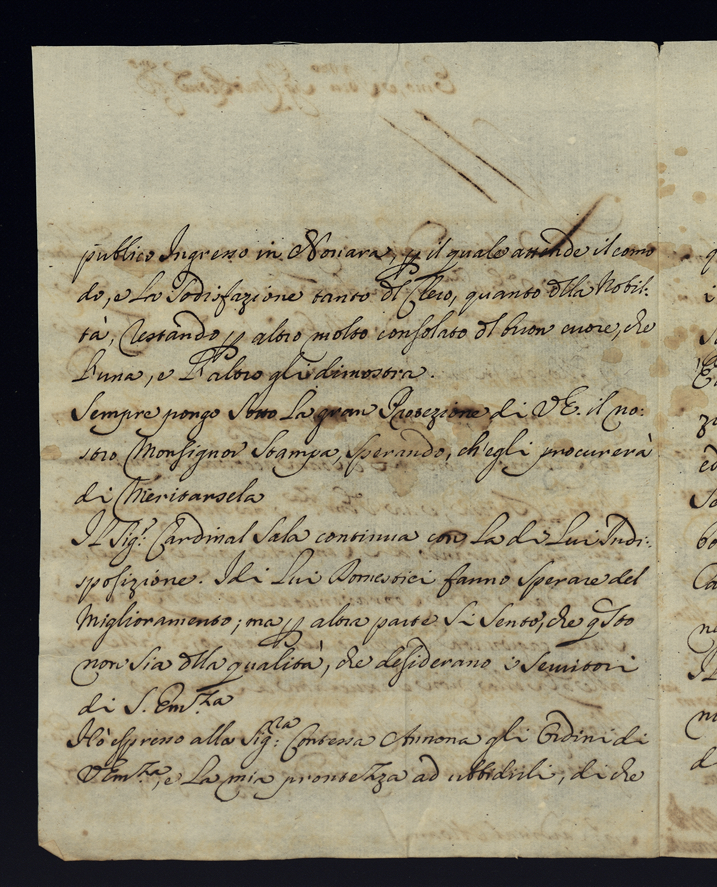 publico Ingresso in Novara, p il quale attende il como
do, e La Sodisfazione tanto dl Clero, quanto dlla Nobil:
tà, restando p altro molto consolato dl buon cuore, che
l'una, e l'altro gli dimostra.
Sempre pongo Sotto La gran Protezione di V.E. il no:
stro Monsignor Stampa, sperando, ch'egli procurerà
di Meritarsela
Il Sig.r Cardinal Sala continua con La di Lui Indi:
sposizione. I di Lui Domestici fanno sperare del
Miglioramento; ma p altra parte Si Sente, che qsto
non sia dlla qualità, che desiderano i Servitori
di S. Em.za
Hò espresso alla Sig.ra Contessa Annona gli Ordini di
V. Em.za, e La mia prontezza ad ubbidirli, di che